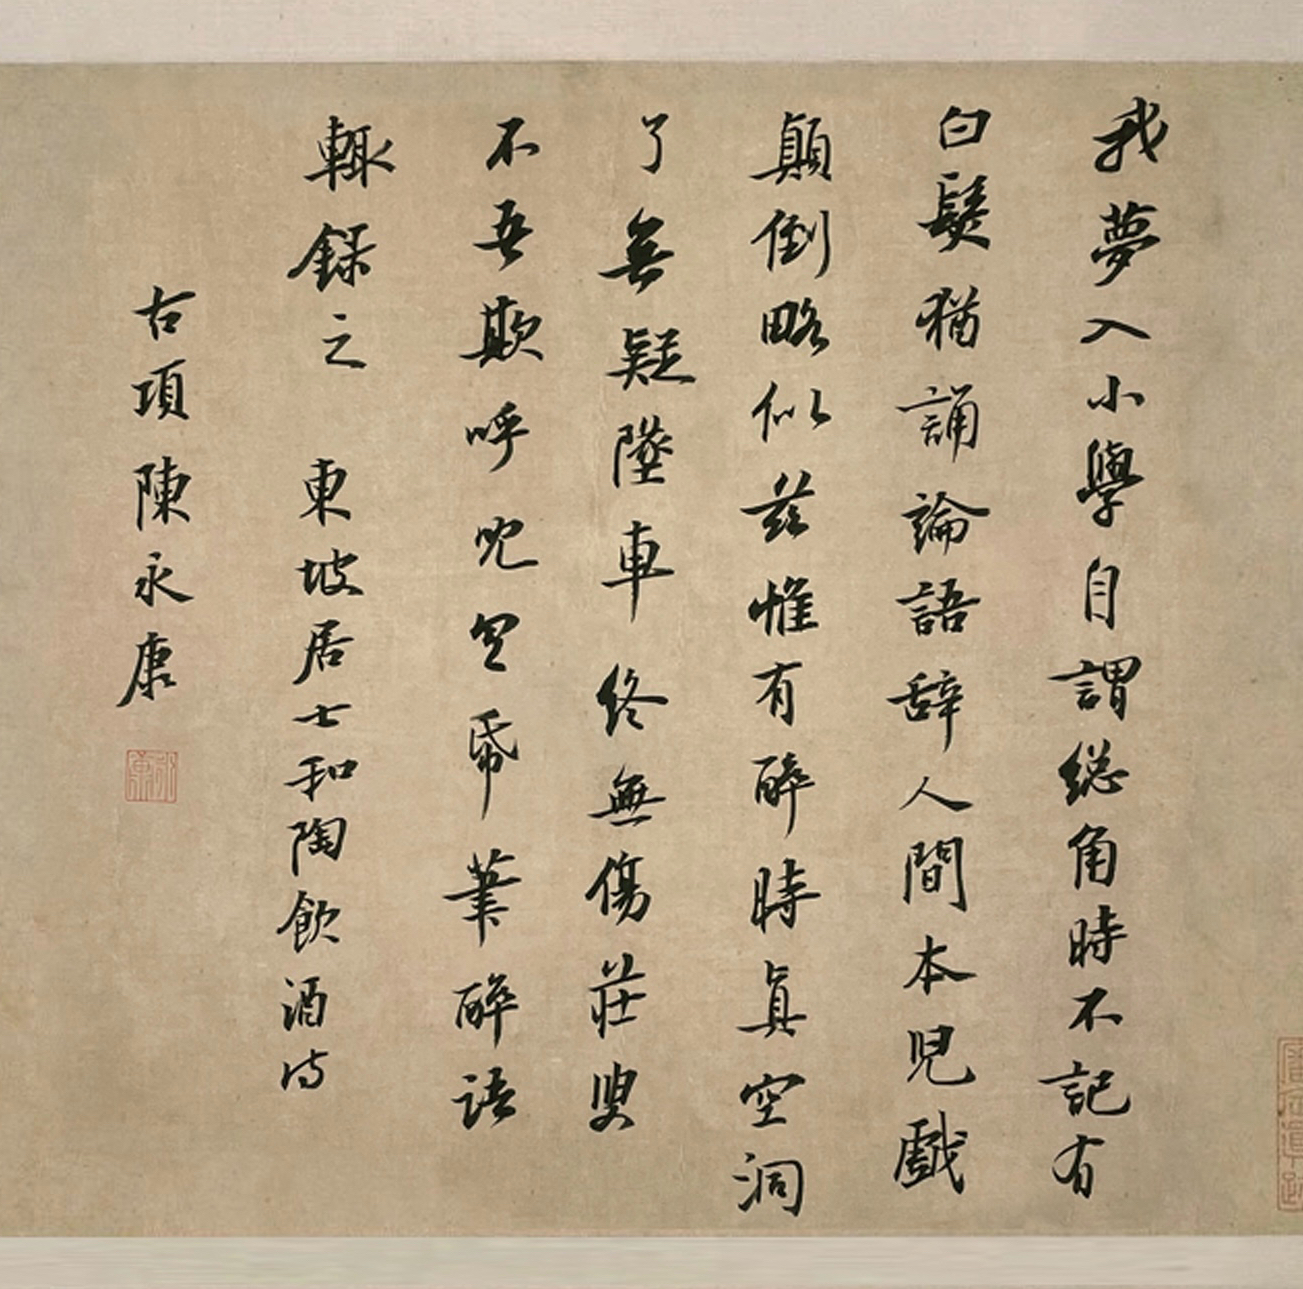 我夢入小學自謂總角時不記有
白髮猶誦論語辭人間本兒戲
顛倒略似茲惟有醉時真空洞
了無疑墜車終無傷莊叟
不吾欺呼兒具紙筆醉語
輒錄之 東坡居士和陶飲酒詩
古項陳永康